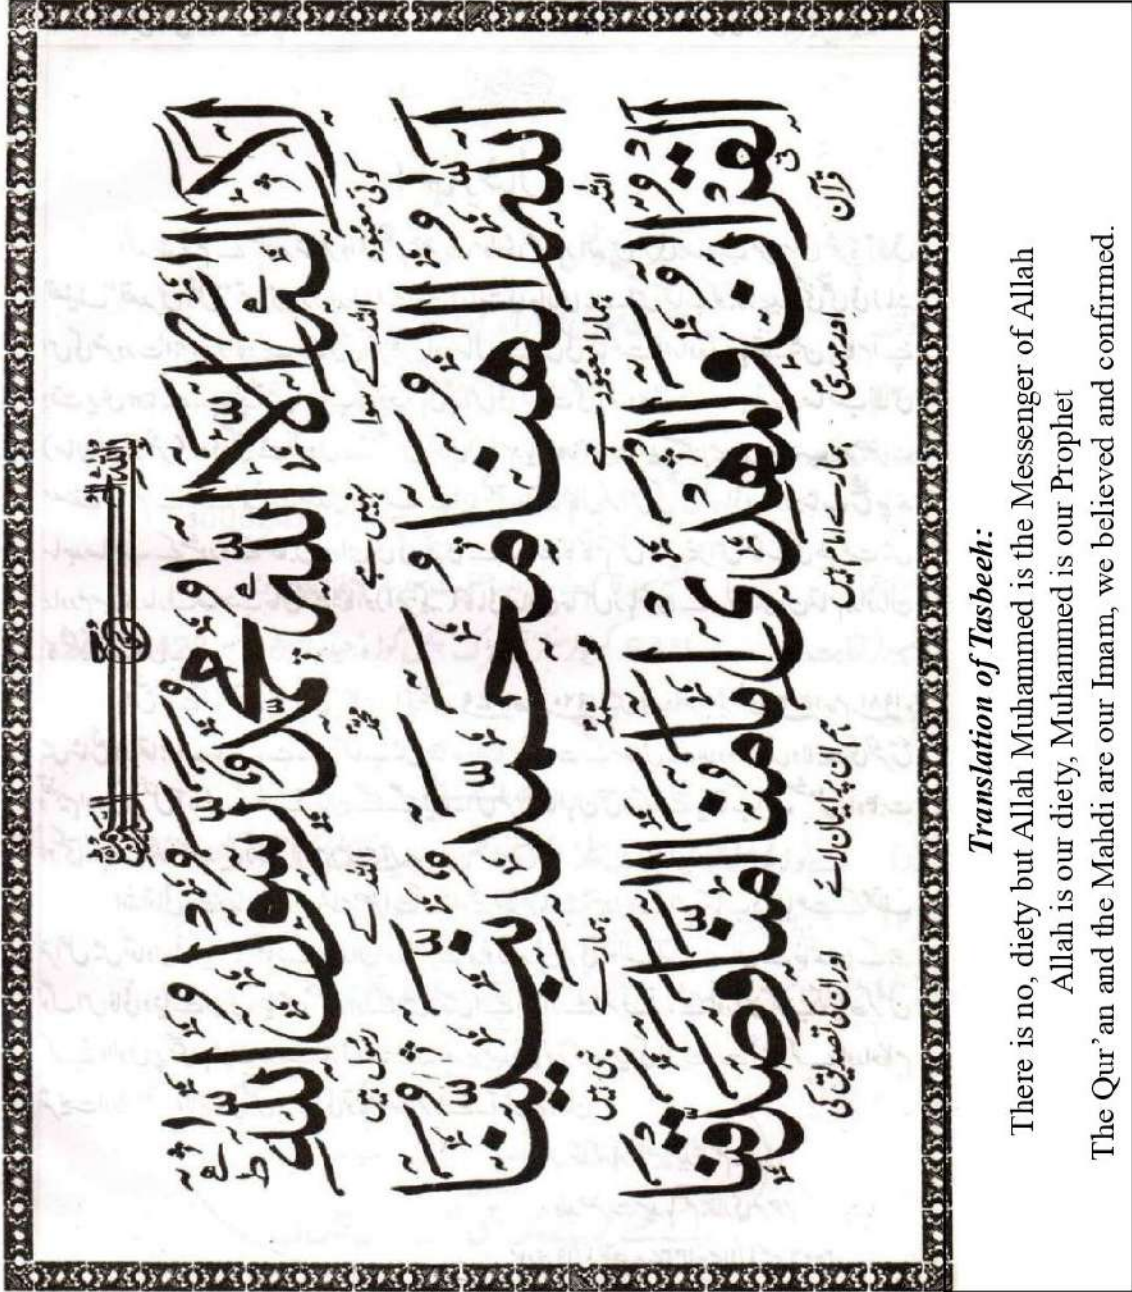 بسم الله الرحمن الرحيم
لا اله الا الله محمد رسول الله
کوئی معبود اللہ کے سوا نہیں ہے محمدؐ اللہ کے رسول ہیں
الله الهنا محمد نبينا
اللہ ہمارا معبود ہے محمدؐ ہمارے نبی ہیں
القران والمهدى امامنا امنا وصدقنا
قرآن اور مہدیؑ ہمارے امام ہیں ہم ان پر ایمان لائے اور ان کی تصدیق کی
Translation of Tasbeeh:
There is no, diety but Allah Muhammed is the Messenger of Allah
Allah is our diety, Muhammed is our Prophet
The Qur'an and the Mahdi are our Imam, we believed and confirmed.